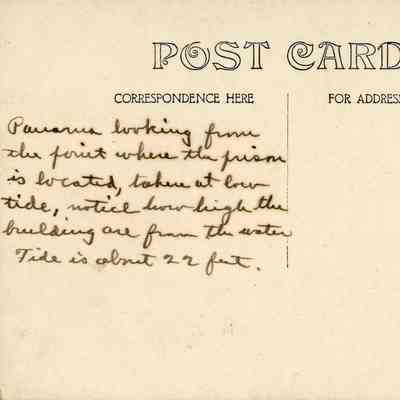 POST CARD
CORRESPONDENCE HERE
FOR ADDRESS
Panama looking from
the point where the prison
is located, taken at low
tide, notice how high the
building are from the water
Tide is about 22 feet.